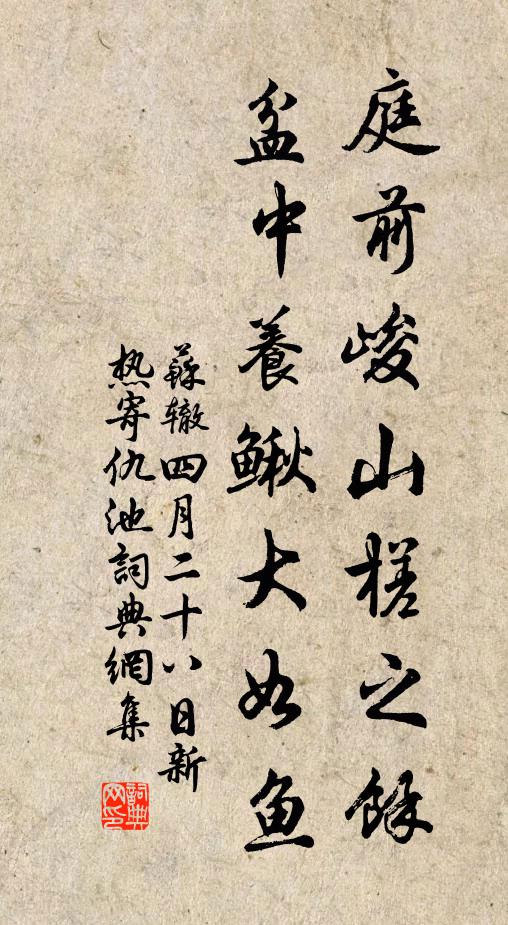 庭前峻山槎之餘
盆中養鳅大如魚
蘇辙四月二十八日新
热寄仇池詞典網集
詞典网印